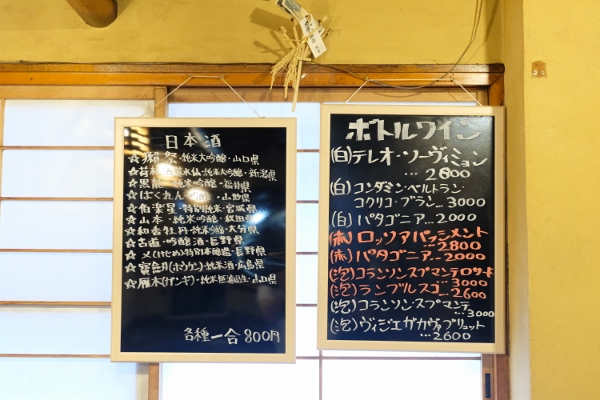 日本酒
☆獺祭・純米大吟醸・山口県
☆荷札 水仙・純米大吟醸・新潟県
☆黒龍 純米吟醸・福井県
☆ばくれん 吟醸・山形県
☆伯楽星・特別純米・宮城県
☆山本・純米吟醸・秋田県
☆和香牡丹・純米吟醸・大分県
☆吟醸酒・長野県
☆〆(しめ)特別本醸造・長野県
☆寳剱(ホウケン)・純米酒・広島県
☆雁木(ガンギ)・純米無濾過生・山口県
各種一合 800円
ボトルワイン
(白)テレオ・ソーヴィニョン
… 2600
(白)コンダミン・ベルトラン
コクリコ・ブラン…3000
(白)パタゴニア…2000
(赤)ロッソアパッシメント
…2800
(赤)パタゴニア…2000
(泡)コランソンスプマンテロザート
…3000
(泡)ランブルスコ…2600
(泡)コランソン・スプマンテ
…3000
(泡)ヴィジエガカヴァブリュット
…2600